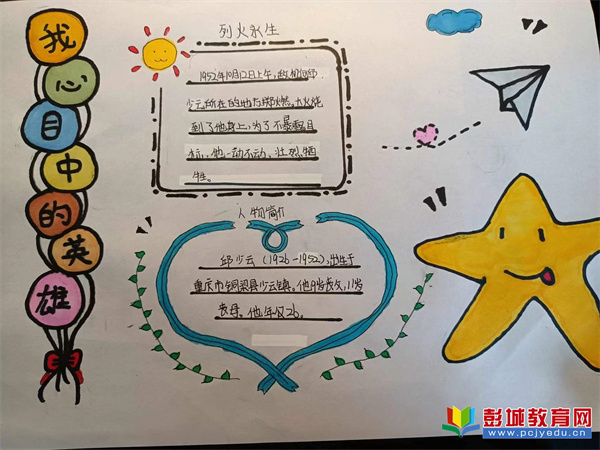 我心目中的英雄
烈火永生
1952年10月12日上午,敌机向邱
少云所在的地方掷燃,大火烧
到了他身上,为了不暴露目
标,他一动不动,壮烈牺
牲。
人物简介
邱少云(1926-1952),出生于
重庆市铜梁县少云镇,他9岁丧父,11岁
丧母,他年仅26。
彭城教育网
www.pcjyedu.cn